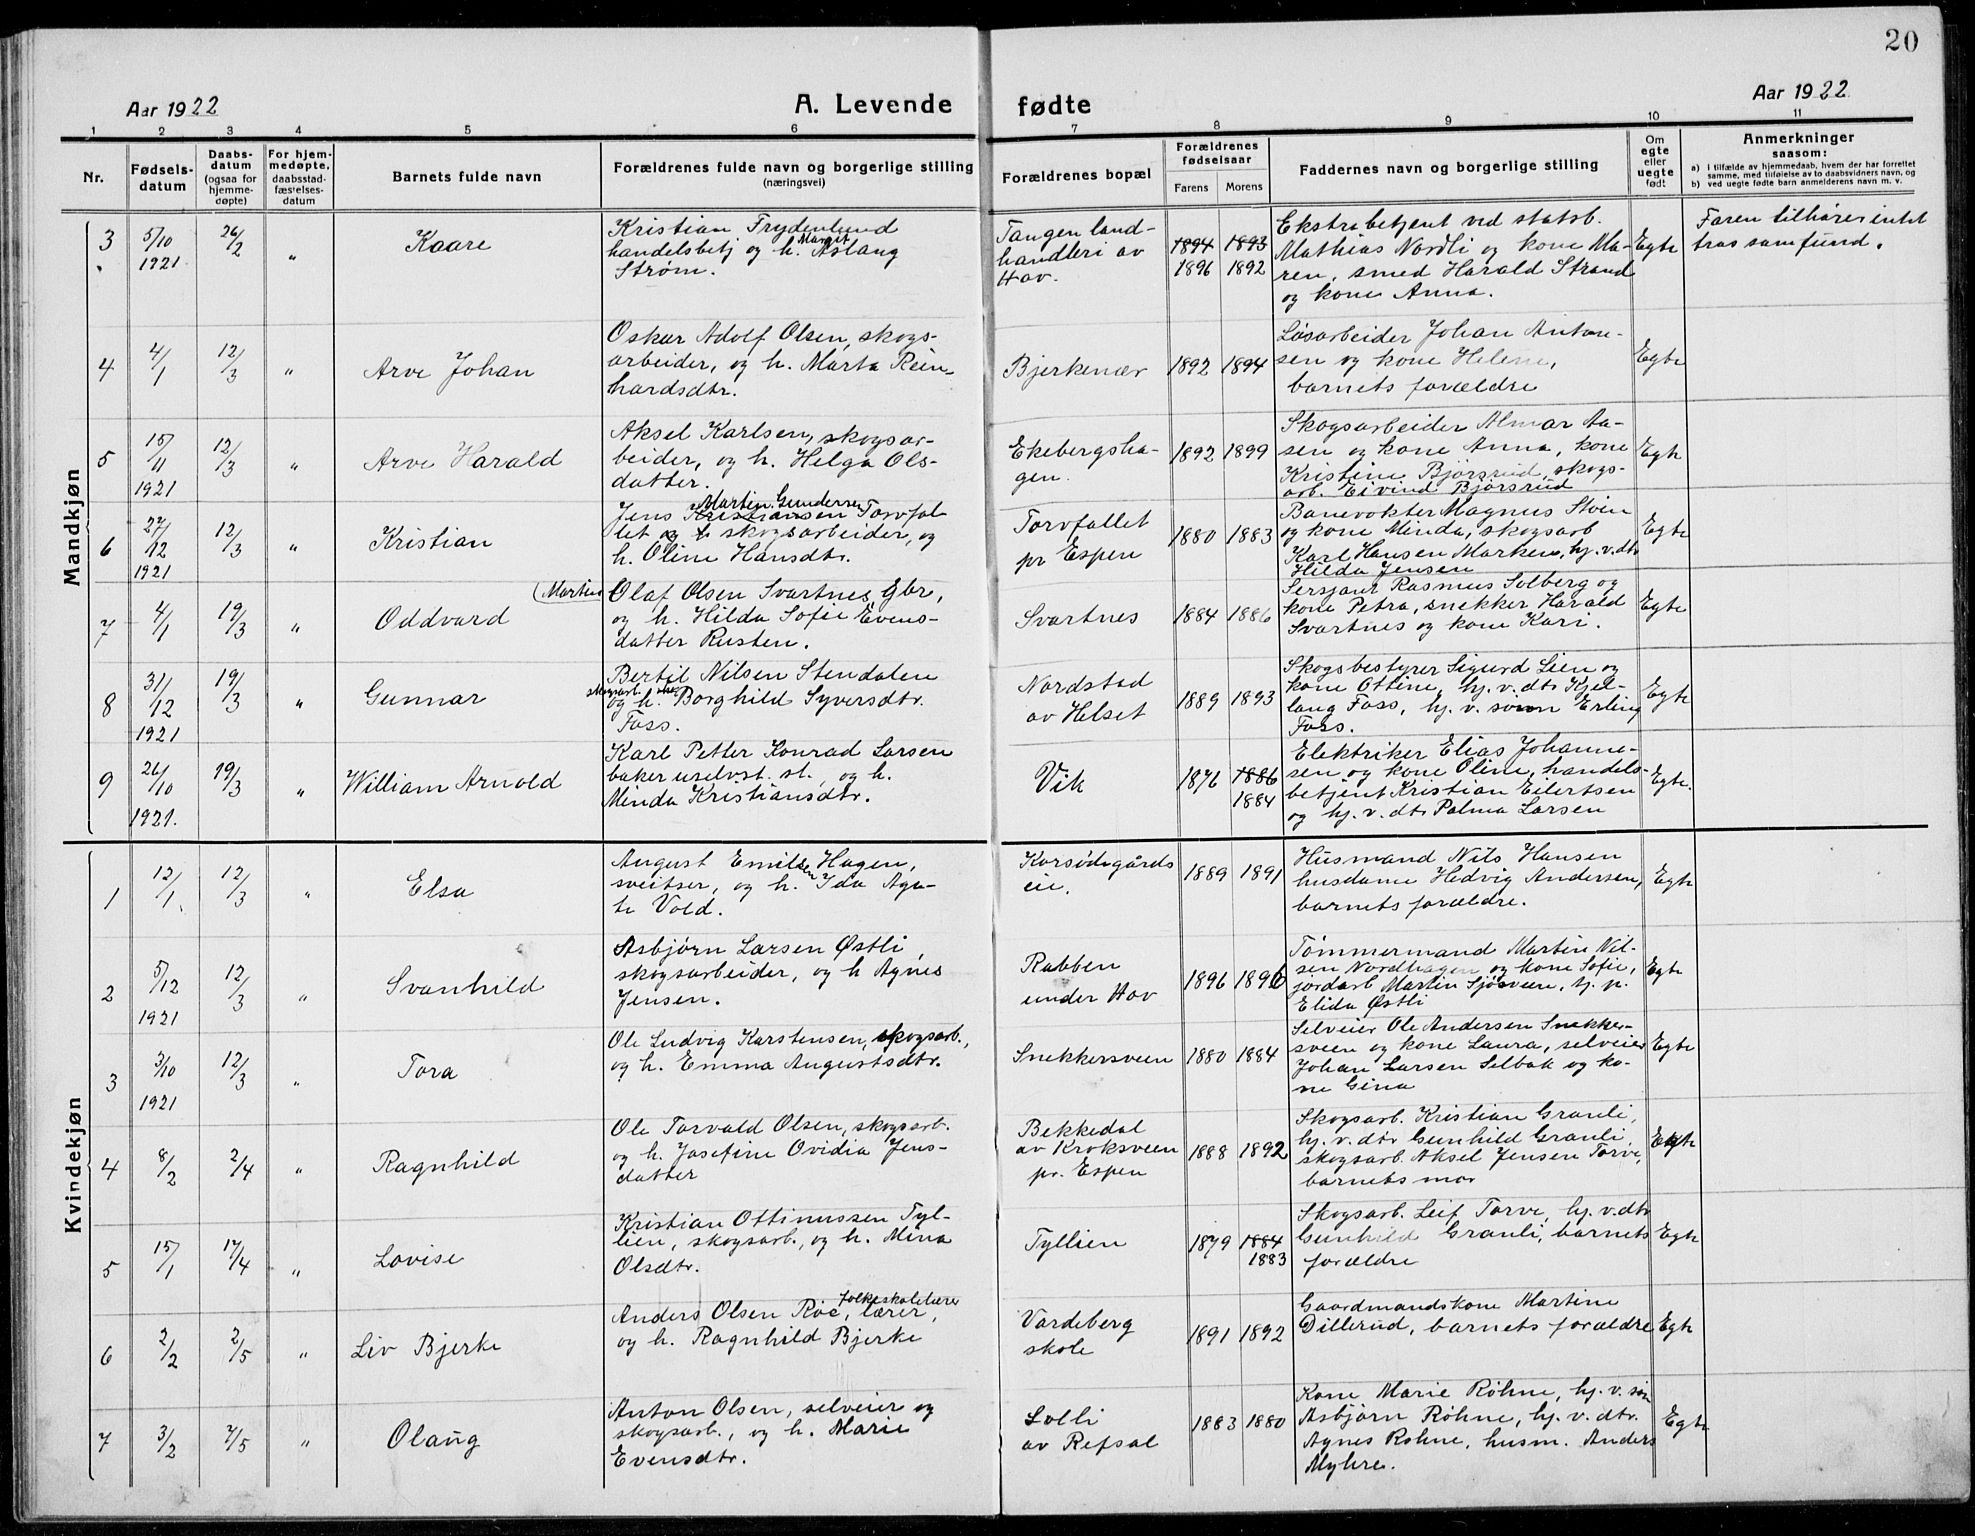 20
Aar 1922
A. Levende
fødte
Aar 1922
1 2 3 4 5 6 7 8 9 10 11
Nr.
Fødsels-
datum
Daabs-
datum
(ogsaa for
hjemme-
døpte)
For hjem-
medøpte,
daabsstad-
fæstelses-
datum
Barnets fulde navn
Forældrenes fulde navn og borgerlige stilling
(næringsvei)
Forældrenes bopæl
Forældrenes
fødselsaar
Farens Morens
Faddernes navn og borgerlige stilling
Om
egte
eller
uegte
født
Anmerkninger
saasom:
a) I tilfælde av hjemmedaab, hvem der har forrettet
samme, med tilføielse av to daabsvidners navn, og
b) ved uegte fødte barn anmelderens navn m. v.
Mandkjøn
3
5/10
1921
26/2
"
Kaare
Kristian Frydenlund
handelsbetj og h. Margit Aslaug
Strøm.
Tangen land-
handleri av
Hov.
1894 1893
1896 1892
Ekstrabetjent ved statsb.
Mathias Nordli og kone Ma-
ren, smed Harald Strand
og kone Anna.
Egte
Faren tilhører intet
tros samfund.
4
4/1
12/3
"
Arve Johan
Oskar Adolf Olsen, skogs-
arbeider, og h. Marta Rein-
hardsdtr.
Bjerkenær
1892 1894
Løsarbeider Johan Anton-
sen og kone Helene,
barnets forældre
Egte
5
15/11
1921
12/3
"
Arve Harald
Aksel Karlsen, skogsar-
beider, og h. Helga Ols-
datter.
Ekebergsha-
gen.
1892 1899
Skogsarbeider Almar Aa-
sen og kone Anna, kone
Kristine Bjørsrud, skogs-
arb. Eivind Bjørsrud
Egte
6
27/12
1921
12/3
"
Kristian
Jens Kristiansen Martin Gundersen Torvfal-
let og h skogsarbeider, og
h. Oline Hansdtr.
Torvfallet
pr Espen
1880 1883
Banevokter Magnus Stein
og kone Minda, skogsarb
Karl Hansen Marken, hj. v. dtr
Hilda Jensen
Egte
7
4/1
19/3
"
Oddvard
(Martin
Olaf Olsen Svartnes Gbr,
og h. Hilda Sofie Evens-
datter Rusten.
Svartnes
1884 1886
Sersjant Rasmus Solberg og
kone Petra, snekker Harald
Svartnes og kone Kari.
Egte
8
31/12
1921
19/3
"
Gunnar
Bertil Nilsen Stendalen
skogsarb. og h. Borghild Syversdtr.
Foss.
Nordstad
av Helset
1889 1893
Skogsbestyrer Sigurd Lien og
kone Ottine, hj. v. dtr Kjel-
laug Foss, hj. v. sønn Erling
Foss.
Egte
9
26/10
1921.
19/3
"
William Arnold
Karl Petter Konrad Larsen
baker uselvst. st., og h.
Minda Kristiansdtr.
Vik
1876 1886
1884
Elektriker Elias Johanne-
sen og kone Oline, handels-
betjent Kristian Eilertsen
og hj. v. dtr Palma Larsen
Egte.
Kvindekjøn
1
12/1.
12/3
"
Elsa
August Emilsen Hagen,
sveitser, og h. Ida Aga-
te Vold.
Korsødegårds
eie.
1889 1891
Husmand Nils Hansen
husdame Hedvig Andersen,
barnets forældre.
Egte
2
5/12
1921
12/3
"
Svanhild
Asbjørn Larsen Østli,
skogsarbeider, og h Agnes
Jensen.
Rabben
under Hov
1896 1896
Tømmermand Martin Nil-
sen Nordhagen og kone Sofie,
jordarb Martin Sjøsveen, tj. p.
Elida Østli
Egte
3
3/10
1921
12/3
"
Tora
Ole Ludvig Karstensen, skogsarb.,
og h. Emma Augustsdtr.
Snekkersveen
1880 1884
Selveier Ole Andersen Snekker-
sveen og kone Laura, selveier
Johan Larsen Selbak og ko-
ne Gina
Egte
4
8/2
2/4
"
Ragnhild
Ole Torvald Olsen, skogsarb.
og h. Josefine Ovidia Jens-
datter
Bekkedal
av Kroksveen
pr. Espen
1888 1892
Skogsarb. Kristian Granli,
hj. v. dtr Gunhild Granli,
skogsarb. Aksel Jensen Torve,
barnets mor
Egte
5
15/1
17/4
"
Lovise
Kristian Ottinussen Tyl-
lien, skogsarb., og h. Mina
Olsdtr.
Tyllien
1879 1884
1883
Skogsarb. Leif Torve, hj. v. dtr
Gunhild Granli, barnets
forældre
Egte
6
2/2
2/5
"
Liv Bjerke
Anders Olsen Røe, folkeskolelærer lærer,
og h. Ragnhild Bjerke
Vardeberg
skole
1891 1892
Gaardmandskone Martine
Dillerud, barnets forældre
Egte
7
3/2
7/5
"
Olaug
Anton Olsen, selveier og
skogsarb., og h. Marie
Evensdtr.
Solli
av Refsal
1883 1880
Kone Marie Røhne, hj. v. søn
Asbjørn Røhne, hj. v. dtr.
Agnes Røhne, husm. Anders
Myhre.
Egte